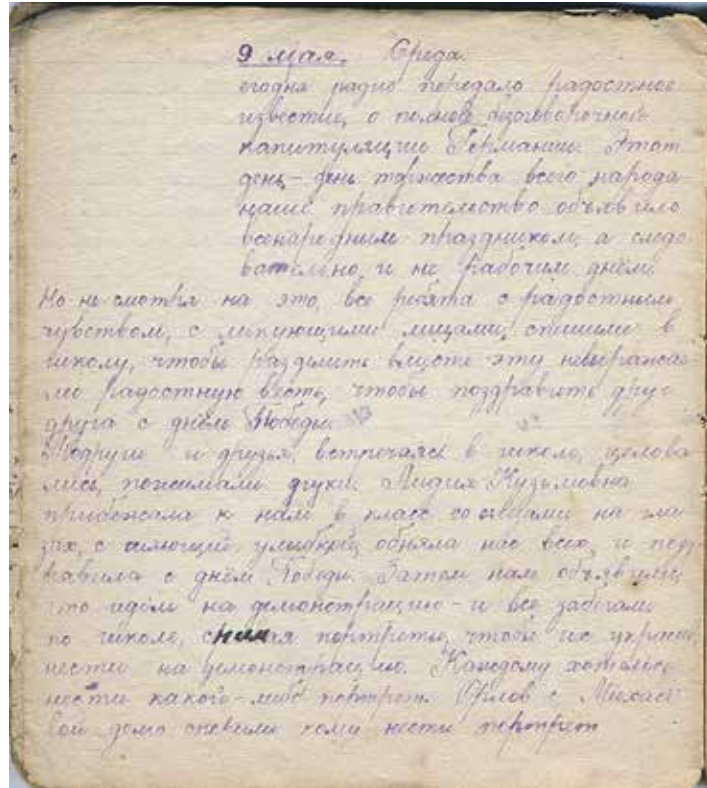 9 мая. Среда.
егодня радио передало радостное
известие, о полной безоговорочной
капитуляции Германии. Этот
день - день торжества всего народа
наше правительство объявило
всенародным праздником, а следо
вательно, и не рабочим днём.
Но не смотря на это, все ребята с радостным
чувством, с ликующими лицами, спешили в
школу, чтобы разделить вместе эту невыразимо
радостную весть, чтобы поздравить друг
друга с днём Победы.
Подруги и друзья, встречаясь в школе, целова
лись, пожимали руки. Лидия Кузьмовна
прибежала к нам в класс со слезами на гла
зах, с сияющей улыбкой, обняла нас всех, и позд
равила с днём Победы. Затем нам объявили,
что идём на демонстрацию - и все забегали
по школе, снимая портреты, чтобы их
нести на демонстрацию. Каждому хотелось
нести какой-либо портрет. Орлов с
кому нести портрет